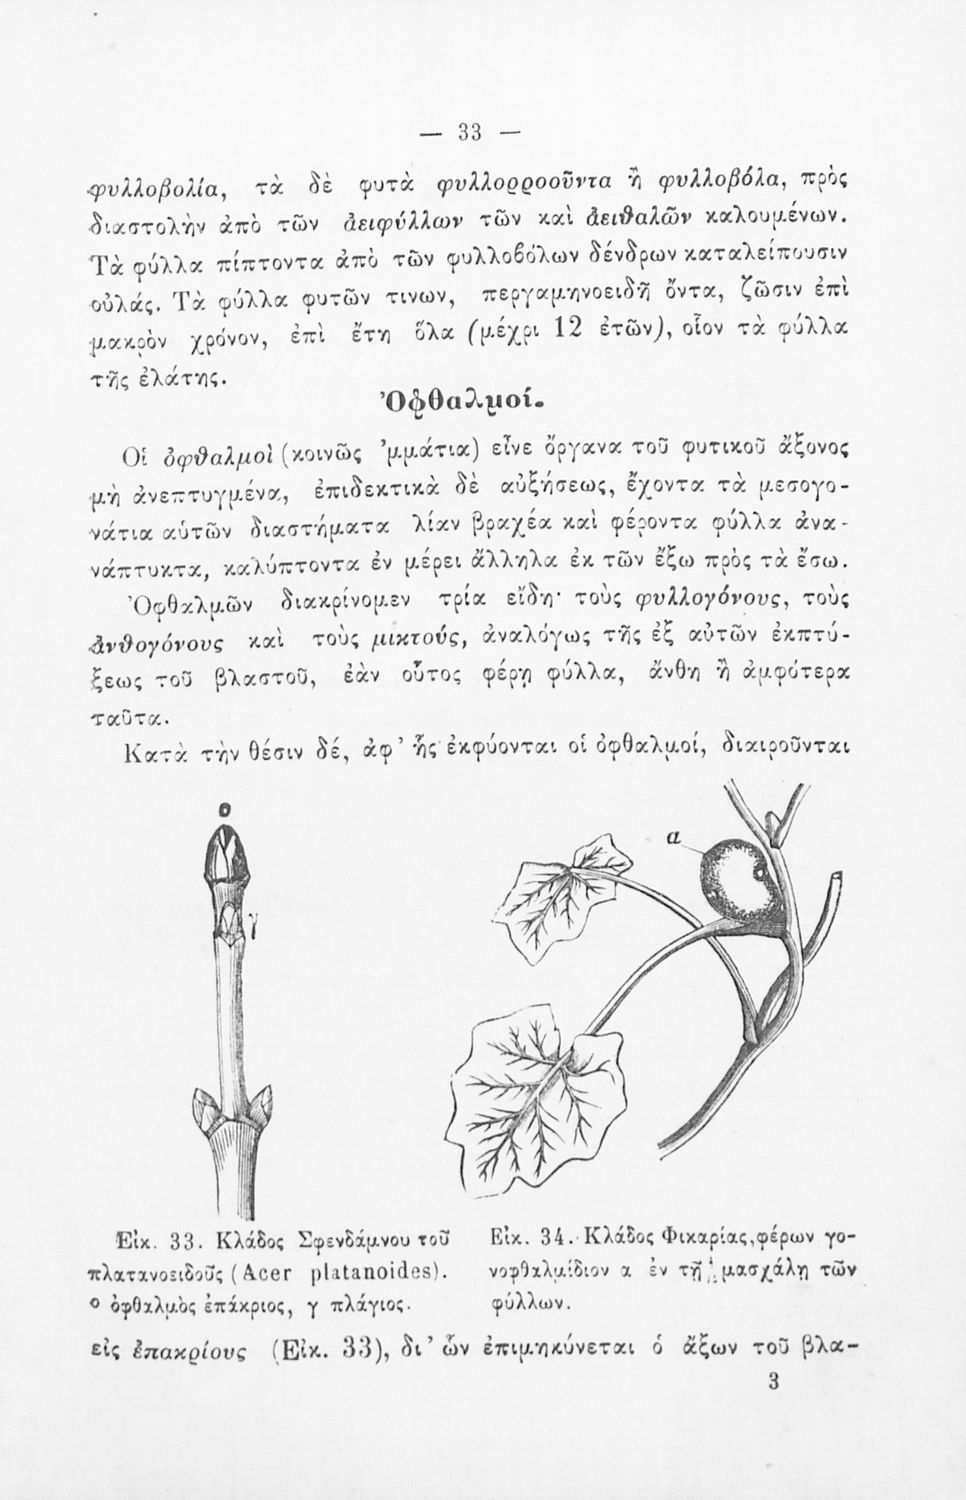 — 33 —
φυλλοβολία, τὰ δὲ φυτὰ φυλλορροοῦντα ἢ φυλλοβόλα, πρὸς
διαστολὴν ἀπὸ τῶν ἀειφύλλων τῶν καὶ ἀειθαλῶν καλουμένων.
Τὰ φύλλα πίπτοντα ἀπὸ τῶν φυλλοβόλων δένδρων καταλείπουσιν
οὐλάς. Τὰ φύλλα φυτῶν τινων, περγαμηνοειδῆ ὄντα, ζῶσιν ἐπὶ
μακρὸν χρόνον, ἐπὶ ἔτη ὅλα (μέχρι 12 ἐτῶν), οἷον τὰ φύλλα
τῆς ἐλάτης.
Ὀφθαλμοί.
Οἱ ὀφθαλμοὶ (κοινῶς ᾿μμάτια) εἶνε ὄργανα τοῦ φυτικοῦ ἄξονος
μὴ ἀνεπτυγμένα, ἐπιδεκτικὰ δὲ αὐξήσεως, ἔχοντα τὰ μεσογο-
νάτια αὑτῶν διαστήματα λίαν βραχέα καὶ φέροντα φύλλα ἀνα-
νάπτυκτα, καλύπτοντα ἐν μέρει ἄλληλα ἐκ τῶν ἔξω πρὸς τὰ ἔσω.
Ὀφθαλμῶν διακρίνομεν τρία εἴδη· τοὺς φυλλογόνους, τοὺς
ἀνθογόνους καὶ τοὺς μικτούς, ἀναλόγως τῆς ἐξ αὐτῶν ἐκπτύ-
ξεως τοῦ βλαστοῦ, ἐὰν οὗτος φέρῃ φύλλα, ἄνθη ἢ ἀμφότερα
ταῦτα.
Κατὰ τὴν θέσιν δέ, ἀφ᾿ ἧς ἐκφύονται οἱ ὀφθαλμοί, διαιροῦνται
ο
γ
α
Εἰκ. 33. Κλάδος Σφενδάμνου τοῦ
πλατανοειδοῦς (Acer platanoides).
ο ὀφθαλμὸς ἐπάκριος, γ πλάγιος.
Εἰκ. 34. Κλάδος Φικαρίας, φέρων γο-
νοφθαλμίδιον α ἐν τῇ μασχάλῃ τῶν
φύλλων.
εἰς ἐπακρίους (Εἰκ. 33), δι᾿ ὧν ἐπιμηκύνεται ὁ ἄξων τοῦ βλα-
3